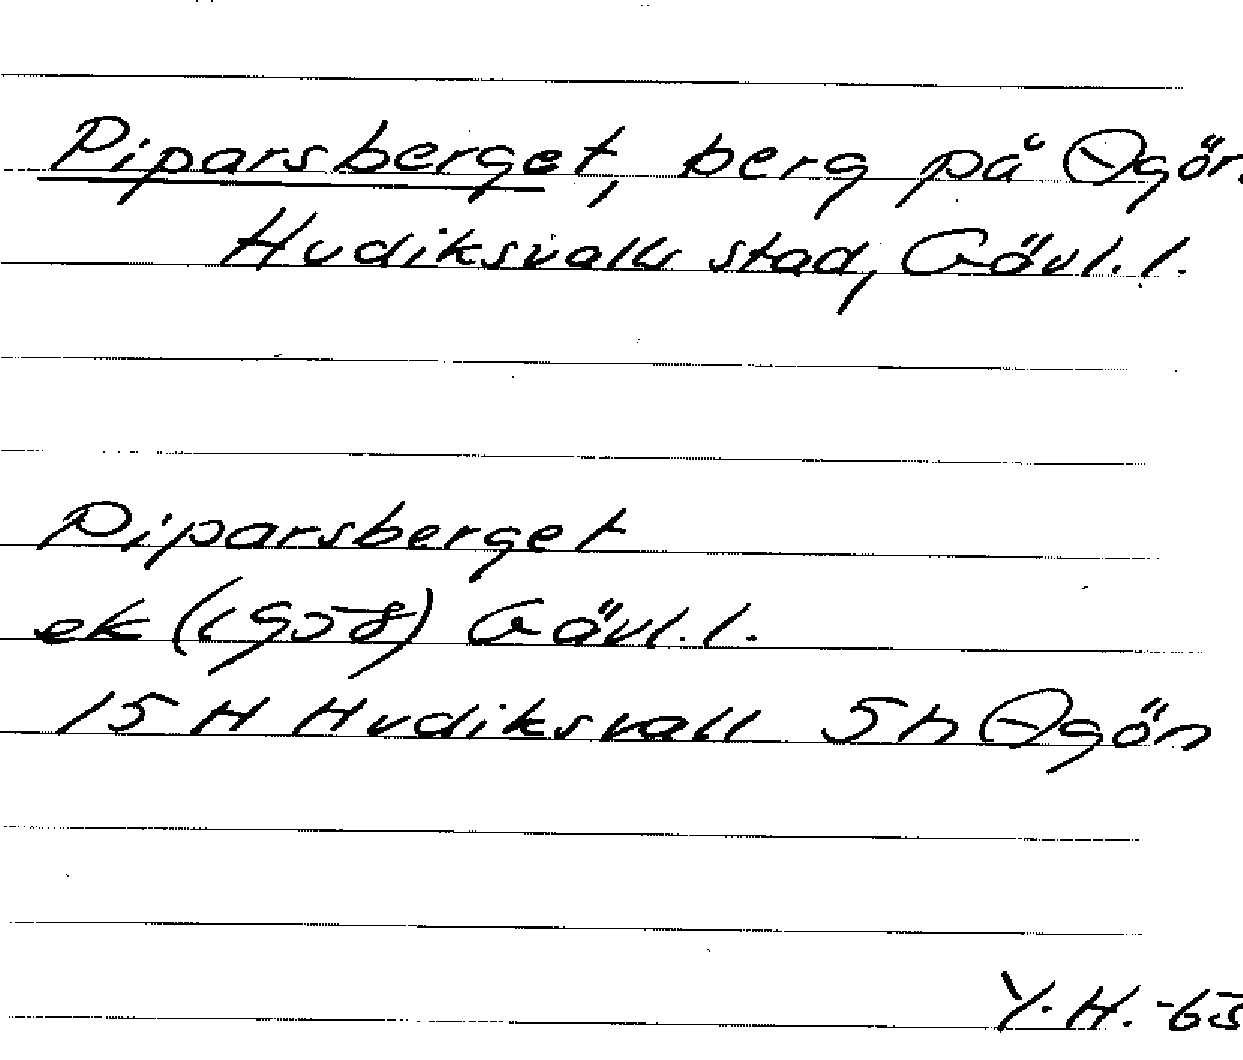 Piparsberget, berg på Ogön.
Hudiksvalls stad, Gävl. l.
Piparsberget
ek (1958) Gävl. l.
15 H Hudiksvall 5h Ogön
Y. H. -65